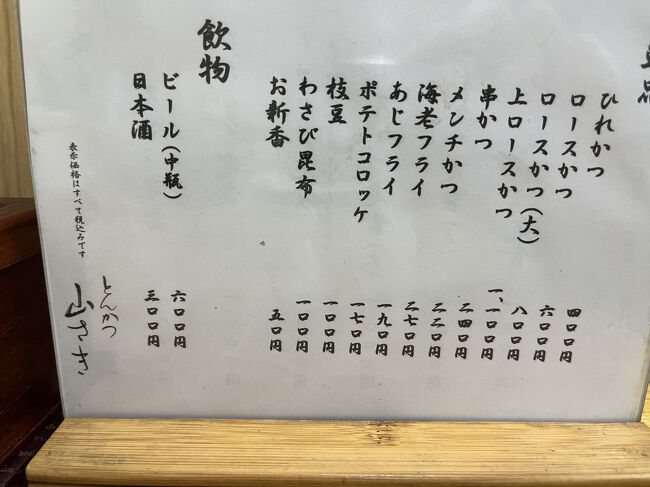 単品
ひれかつ 四〇〇円
ロースかつ 六〇〇円
ロースかつ(大) 八〇〇円
上ロースかつ 一、一〇〇円
串かつ 二四〇円
メンチかつ 二二〇円
海老フライ 二七〇円
あじフライ 一九〇円
ポテトコロッケ 一七〇円
枝豆 一〇〇円
わさび昆布 一〇〇円
お新香 五〇円
飲物
ビール(中瓶) 六〇〇円
日本酒 三〇〇円
表示価格はすべて税込みです
とんかつ
山さき